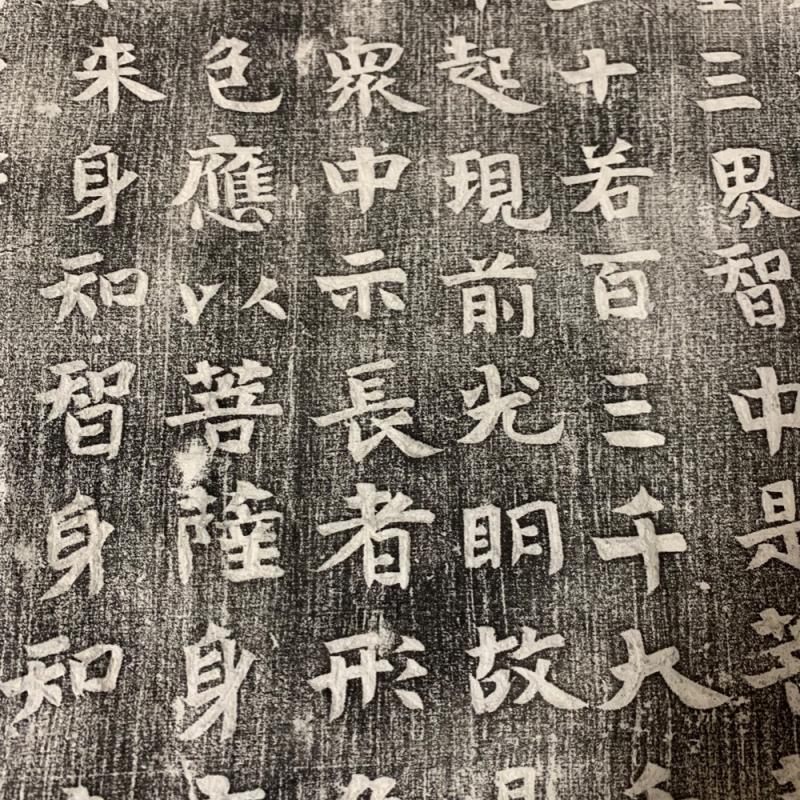 三界智中是
十若百三千大
起現前光明故
衆中示長者形
色應以菩薩身
来身知智身知